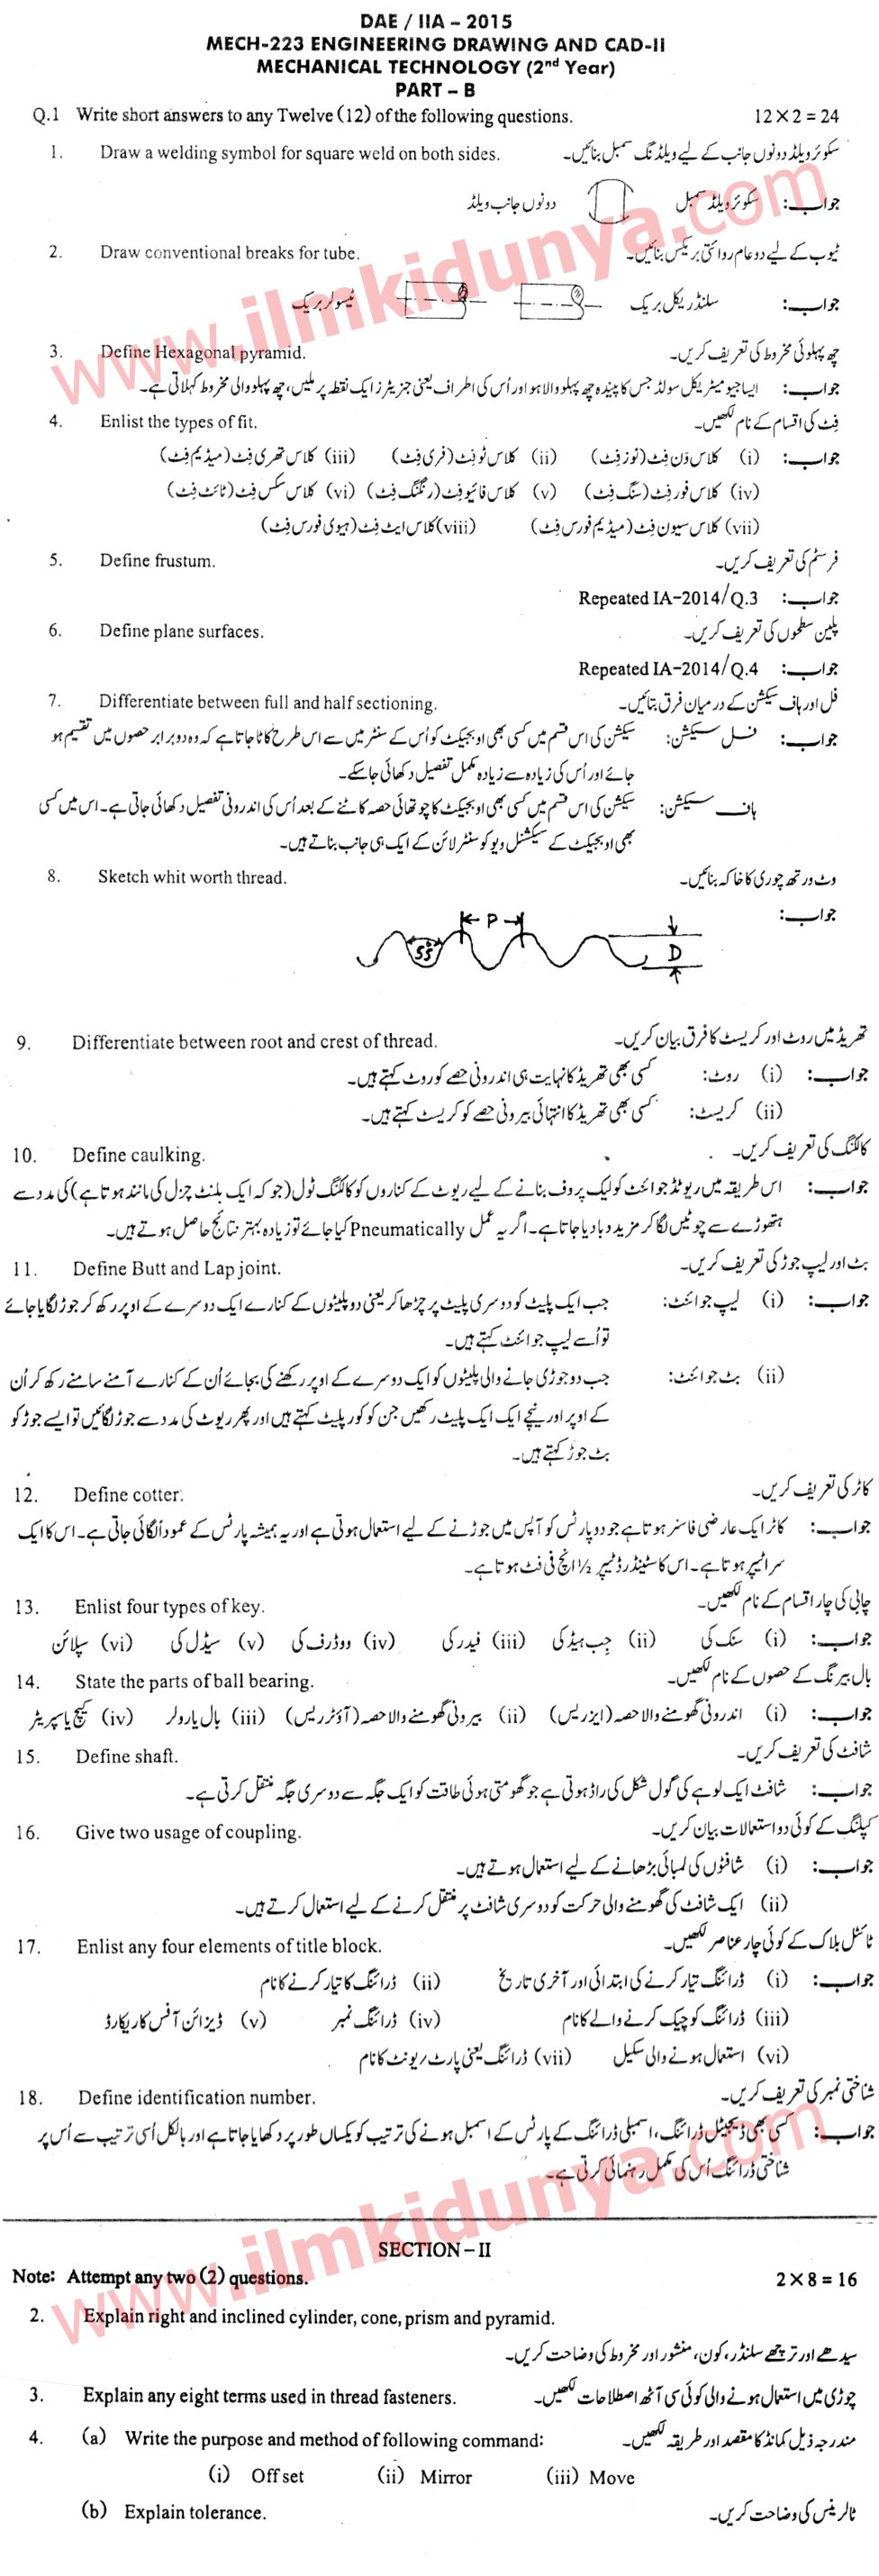 DAE / IIA – 2015
MECH-223 ENGINEERING DRAWING AND CAD-II
MECHANICAL TECHNOLOGY (2nd Year)
PART – B
Q.1 Write short answers to any Twelve (12) of the following questions. 12×2 = 24
1. Draw a welding symbol for square weld on both sides. سکوئر ویلڈ دونوں جانب کے لیے ویلڈنگ سمبل بنائیں۔
جواب: سکوئر ویلڈ سمبل دونوں جانب ویلڈ
2. Draw conventional breaks for tube. ٹیوب کے لیے دو عام روائتی بریکس بنائیں۔
جواب: سلنڈریکل بریک ٹیسولر بریک
3. Define Hexagonal pyramid. چھ پہلوئی مخروط کی تعریف کریں۔
جواب: ایسا جیومیٹریکل سولڈ جس کا پیندہ چھ پہلو والا ہو اور اُس کی اطراف یعنی جنریٹرز ایک نقطہ پر ملیں، چھ پہلو والی مخروط کہلاتی ہے۔
4. Enlist the types of fit. فِٹ کی اقسام کے نام لکھیں۔
جواب: (i) کلاس وَن فِٹ (لوز فِٹ) (ii) کلاس ٹو فِٹ (فری فِٹ) (iii) کلاس تھری فِٹ (میڈیم فِٹ)
(iv) کلاس فور فِٹ (سنگ فِٹ) (v) کلاس فائیو فِٹ (رنگنگ فِٹ) (vi) کلاس سکس فِٹ (ٹائٹ فِٹ)
(vii) کلاس سیون فِٹ (میڈیم فورس فِٹ) (viii) کلاس ایٹ فِٹ (ہیوی فورس فِٹ)
5. Define frustum. فرسٹم کی تعریف کریں۔
جواب: Repeated IA-2014/Q.3
6. Define plane surfaces. پلین سطحوں کی تعریف کریں۔
جواب: Repeated IA-2014/Q.4
7. Differentiate between full and half sectioning. فل اور ہاف سیکشن کے درمیان فرق بتائیں۔
جواب: فل سیکشن: سیکشن کی اس قسم میں کسی بھی اوبجیکٹ کو اُس کے سنٹر میں سے اس طرح کاٹا جاتا ہے کہ وہ دو برابر حصوں میں تقسیم ہو
جائے اور اُس کی زیادہ سے زیادہ مکمل تفصیل دکھائی جا سکے۔
ہاف سیکشن: سیکشن کی اس قسم میں کسی بھی اوبجیکٹ کا چوتھائی حصہ کاٹنے کے بعد اُس کی اندرونی تفصیل دکھائی جاتی ہے۔ اس میں کسی
بھی اوبجیکٹ کے سیکشنل ویو کو سنٹر لائن کے ایک ہی جانب بناتے ہیں۔
8. Sketch whit worth thread. وٹ ورتھ چوڑی کا خاکہ بنائیں۔
جواب:
P
55°
D
9. Differentiate between root and crest of thread. تھریڈ میں روٹ اور کریسٹ کا فرق بیان کریں۔
جواب: (i) روٹ: کسی بھی تھریڈ کا نہایت ہی اندرونی حصے کو روٹ کہتے ہیں۔
(ii) کریسٹ: کسی بھی تھریڈ کا انتہائی بیرونی حصے کو کریسٹ کہتے ہیں۔
10. Define caulking. کالکنگ کی تعریف کریں۔
جواب: اس طریقہ میں ریوٹڈ جوائنٹ کو لیک پروف بنانے کے لیے ریوٹ کے کناروں کو کالکنگ ٹول (جو کہ ایک بلنٹ چزل کی مانند ہوتا ہے) کی مدد سے
ہتھوڑے سے چوٹیں لگا کر مزید دبا دیا جاتا ہے۔ اگر یہ عمل Pneumatically کیا جائے تو زیادہ بہتر نتائج حاصل ہوتے ہیں۔
11. Define Butt and Lap joint. بٹ اور لیپ جوڑ کی تعریف کریں۔
جواب: (i) لیپ جوائنٹ: جب ایک پلیٹ کو دوسری پلیٹ پر چڑھا کر یعنی دو پلیٹوں کے کنارے ایک دوسرے کے اوپر رکھ کر جوڑ لگایا جائے
تو اُسے لیپ جوائنٹ کہتے ہیں۔
(ii) بٹ جوائنٹ: جب دو جوڑی جانے والی پلیٹوں کو ایک دوسرے کے اوپر رکھنے کی بجائے اُن کے کنارے آمنے سامنے رکھ کر اُن
کے اوپر اور نیچے ایک ایک پلیٹ رکھیں جن کو کور پلیٹ کہتے ہیں اور پھر ریوٹ کی مدد سے جوڑ لگائیں تو ایسے جوڑ کو
بٹ جوڑ کہتے ہیں۔
12. Define cotter. کاٹر کی تعریف کریں۔
جواب: کاٹر ایک عارضی فاسنر ہوتا ہے جو دو پارٹس کو آپس میں جوڑنے کے لیے استعمال ہوتی ہے اور یہ ہمیشہ پارٹس کے عموداً لگائی جاتی ہے۔ اس کا ایک
سرا ٹیپر ہوتا ہے۔ اس کا سٹینڈرڈ ٹیپر ½ انچ فی فٹ ہوتا ہے۔
13. Enlist four types of key. چابی کی چار اقسام کے نام لکھیں۔
جواب: (i) سنک کی (ii) جِب ہیڈ کی (iii) فیدر کی (iv) ووڈرف کی (v) سیڈل کی (vi) سپلائن
14. State the parts of ball bearing. بال بیرنگ کے حصوں کے نام لکھیں۔
جواب: (i) اندرونی گھومنے والا حصہ (اینر ریس) (ii) بیرونی گھومنے والا حصہ (آؤٹر ریس) (iii) بال یا رولر (iv) کیج یا سپریٹر
15. Define shaft. شافٹ کی تعریف کریں۔
جواب: شافٹ ایک لوہے کی گول شکل کی راڈ ہوتی ہے جو گھومتی ہوئی طاقت کو ایک جگہ سے دوسری جگہ منتقل کرتی ہے۔
16. Give two usage of coupling. کپلنگ کے کوئی دو استعمالات بیان کریں۔
جواب: (i) شافٹوں کی لمبائی بڑھانے کے لیے استعمال ہوتے ہیں۔
(ii) ایک شافٹ کی گھومنے والی حرکت کو دوسری شافٹ پر منتقل کرنے کے لیے استعمال کرتے ہیں۔
17. Enlist any four elements of title block. ٹائٹل بلاک کے کوئی چار عناصر لکھیں۔
جواب: (i) ڈرائنگ تیار کرنے کی ابتدائی اور آخری تاریخ (ii) ڈرائنگ کا تیار کرنے کا نام
(iii) ڈرائنگ کو چیک کرنے والے کا نام (iv) ڈرائنگ نمبر (v) ڈیزائن آفس کا ریکارڈ
(vi) استعمال ہونے والی سکیل (vii) ڈرائنگ یعنی پارٹ/یونٹ کا نام
18. Define identification number. شناختی نمبر کی تعریف کریں۔
جواب: کسی بھی ڈیجیٹل ڈرائنگ، اسمبلی ڈرائنگ کے پارٹس کے اسمبل ہونے کی ترتیب کو یکساں طور پر دکھایا جاتا ہے اور بالکل اُسی ترتیب سے اُس پر
شناختی ڈرائنگ اُس کی مکمل رہنمائی کرتی ہے۔
SECTION – II
Note: Attempt any two (2) questions. 2×8 = 16
2. Explain right and inclined cylinder, cone, prism and pyramid.
سیدھے اور ترچھے سلنڈر، کون، منشور اور مخروط کی وضاحت کریں۔
3. Explain any eight terms used in thread fasteners. چوڑی میں استعمال ہونے والی کوئی سی آٹھ اصطلاحات لکھیں۔
4. (a) Write the purpose and method of following command: مندرجہ ذیل کمانڈ کا مقصد اور طریقہ لکھیں۔
(i) Off set (ii) Mirror (iii) Move
(b) Explain tolerance. ٹالرینس کی وضاحت کریں۔
www.ilmkidunya.com
www.ilmkidunya.com